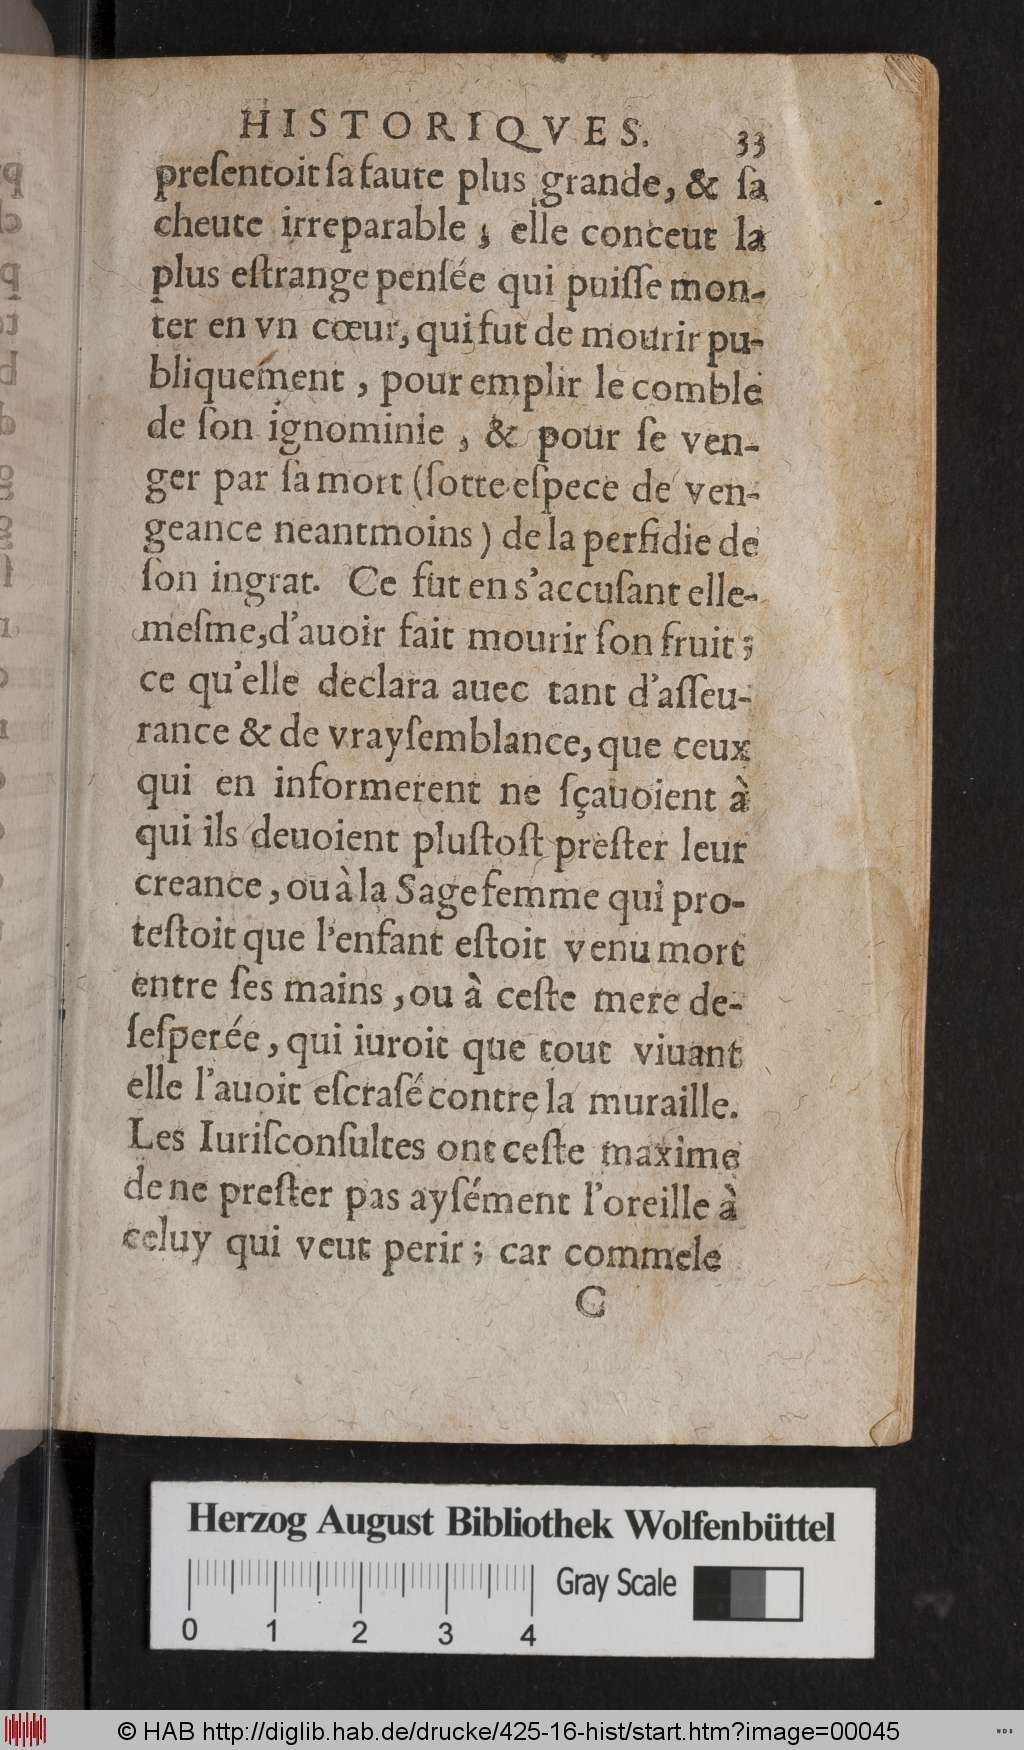 HISTORIQVES. 33
preſentoit ſa faute plus grande, & ſa
cheute irreparable ; elle conceut la
plus eſtrange penſée qui puiſſe mon-
ter en vn cœur, qui fut de mourir pu-
bliquement , pour emplir le comble
de ſon ignominie , & pour ſe ven-
ger par ſa mort (ſotte eſpece de ven-
geance neantmoins) de la perfidie de
ſon ingrat. Ce fut en s'accuſant elle-
meſme, d'auoir fait mourir ſon fruit ;
ce qu'elle declara auec tant d'aſſeu-
rance & de vrayſemblance, que ceux
qui en informerent ne ſçauoient à
qui ils deuoient pluſtoſt preſter leur
creance, ou à la Sage femme qui pro-
teſtoit que l'enfant eſtoit venu mort
entre ſes mains , ou à ceſte mere de-
ſeſperée, qui iuroit que tout viuant
elle l'auoit eſcraſé contre la muraille.
Les Iuriſconſultes ont ceſte maxime
de ne preſter pas ayſément l'oreille à
celuy qui veut perir ; car comme le
C
Herzog August Bibliothek Wolfenbüttel
Gray Scale
0 1 2 3 4
© HAB http://diglib.hab.de/drucke/425-16-hist/start.htm?image=00045